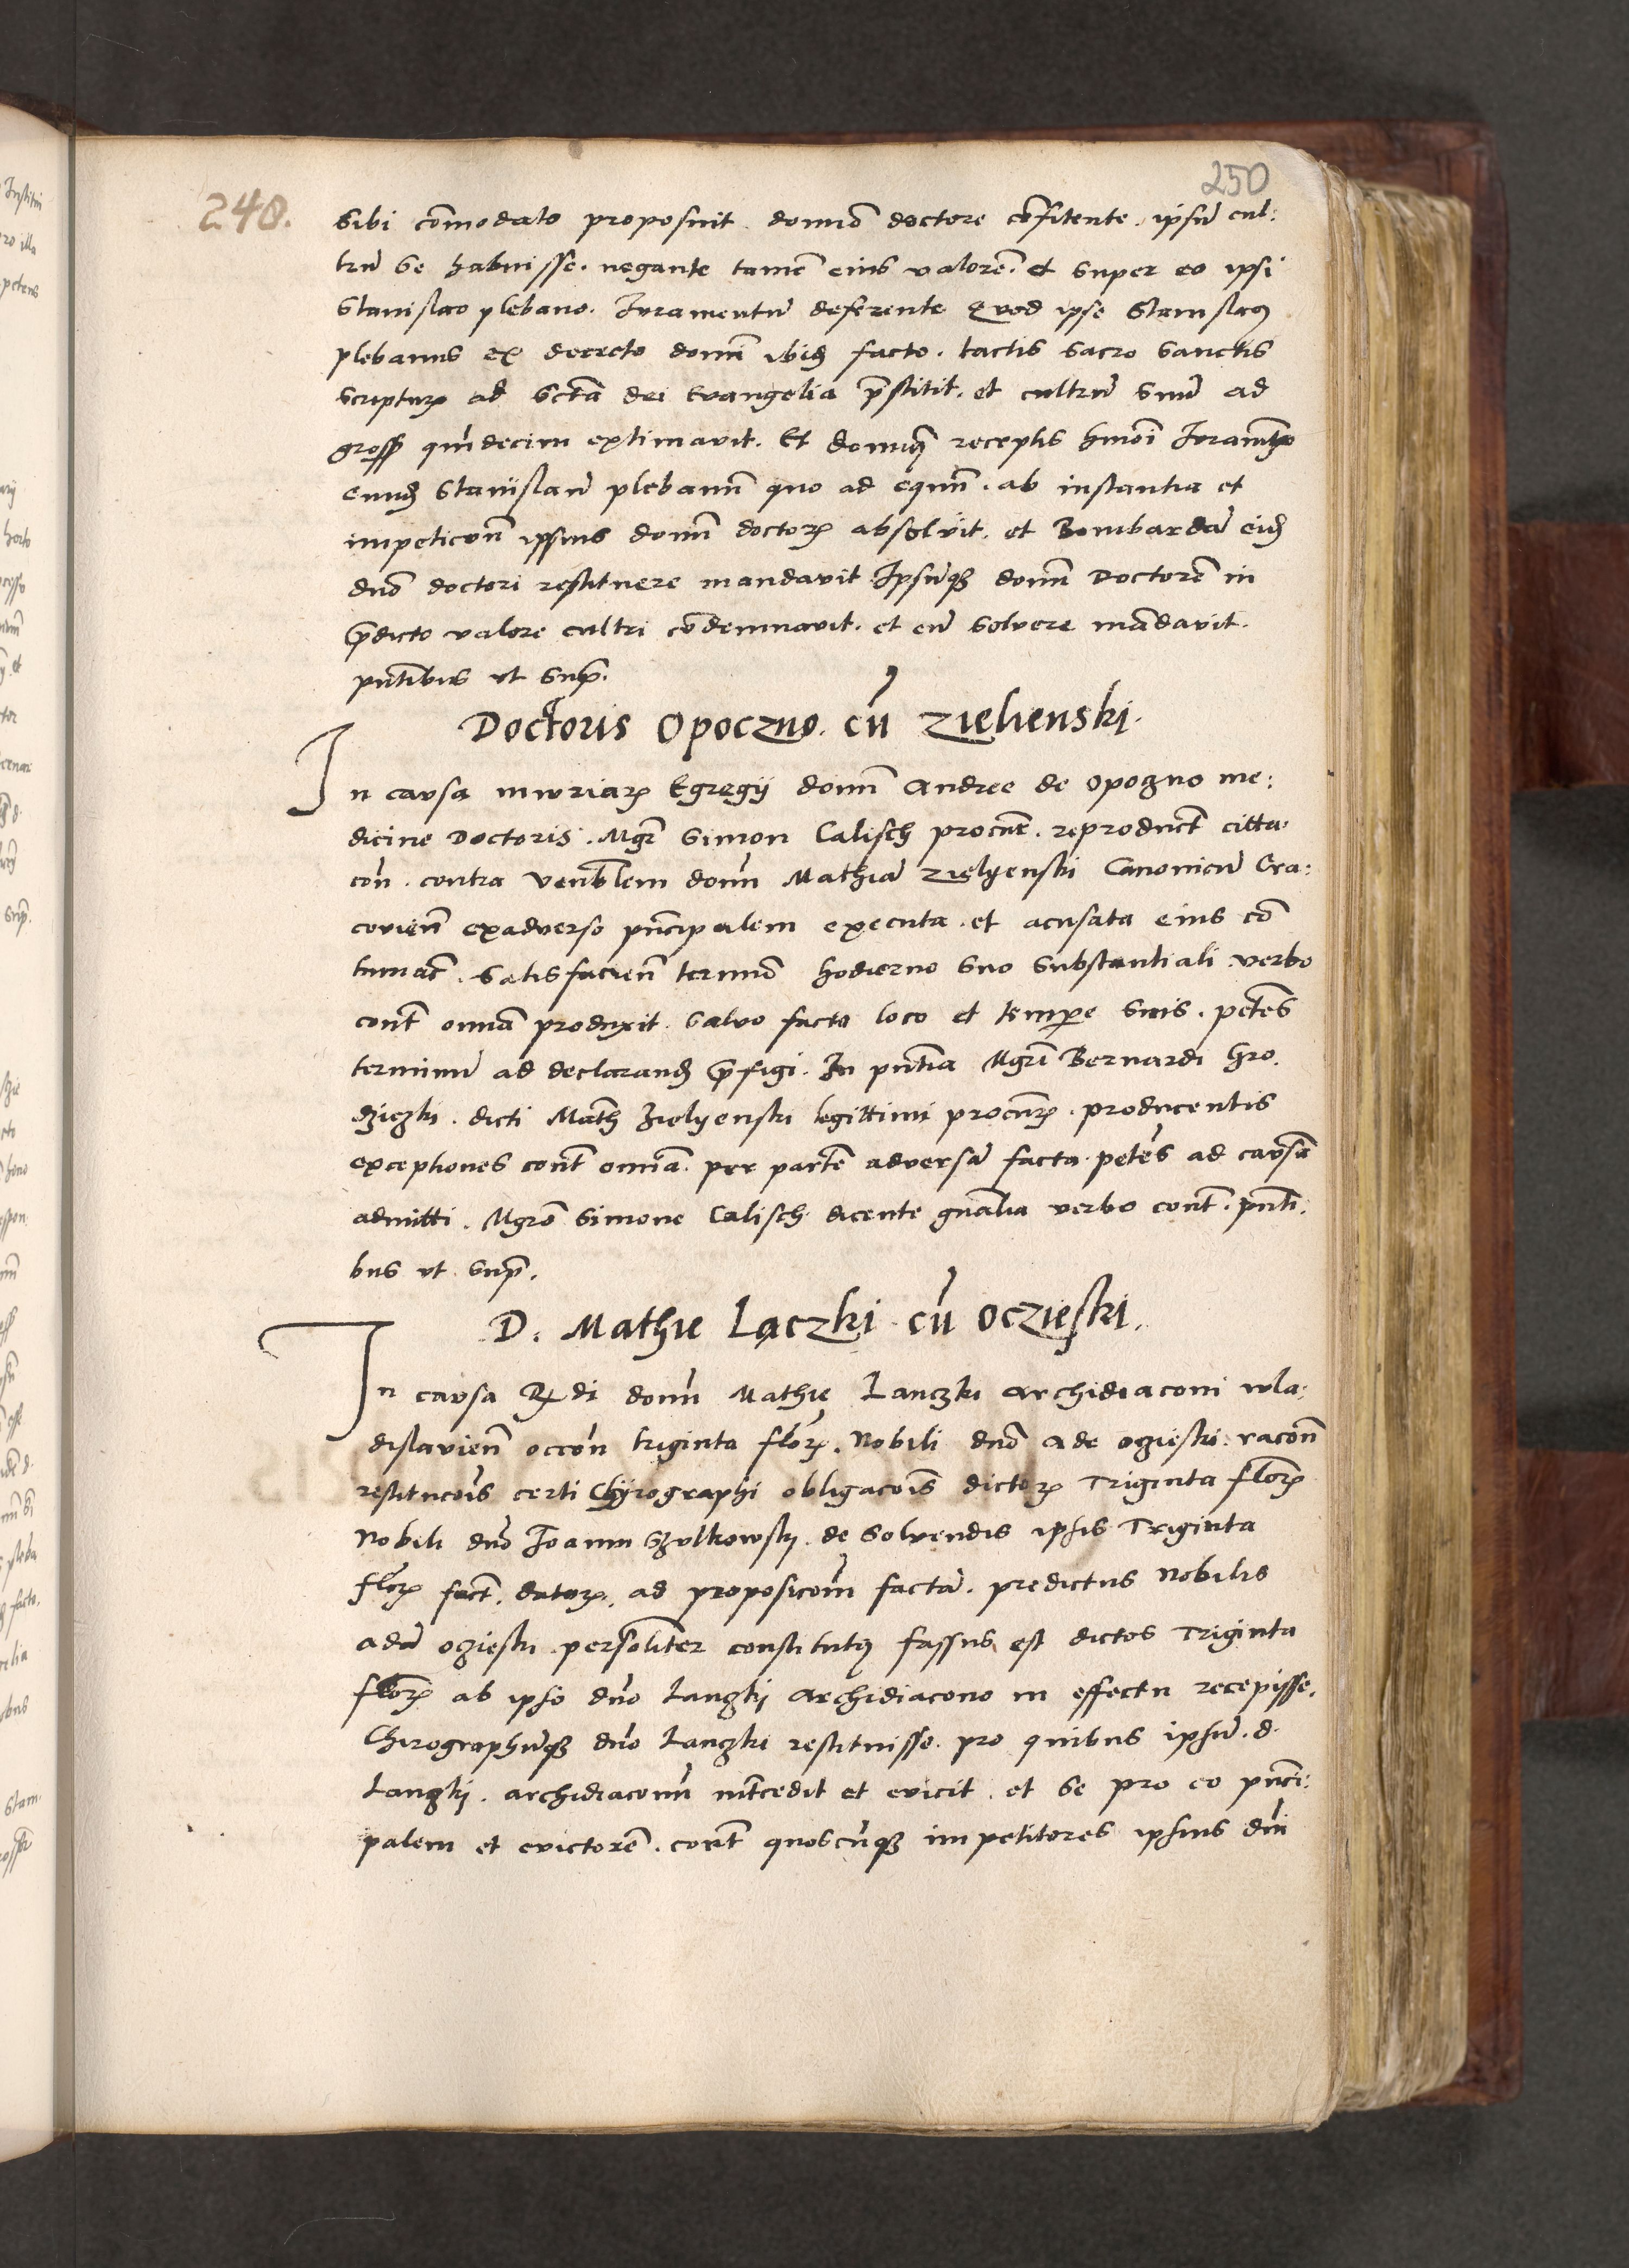 250
248.
sibi com̄odato proposuit. domno doctore cōfitente. ipsū cul:
trū se habuisse. negante tamē eius valorē. et super eo ipsi
Stanislao plebano. Iuramentū deferente Quod ipse Stanislaꝰ
plebanus ex decreto domī ibidꝫ facto. tactis sacro sanctis
scripturꝭ ad sctā dei Evangelia p̄stitit. et cultrū suū ad
gross quīdecim extimavit. Et domīꝰ receptis hmōi Iuramto
eundꝫ Stanislaū plebanū quo ad equū. ab instantia et
impeticōn ipsius domī doctorꝭ absolvit. et Bombardā eidꝫ
dno doctori restituere mandavit Ipsūqꝫ domī Doctorē in
p̄dicto valore cultri cōdemnavit. et eū solvere mādavit.
pntibus ut sup̄.
Doctoris Opoczno. cū Zielienski.
In causa iniuriaꝝ Egregii domī Andree de Opoczno me:
dicine Doctoris. Mgr Simon Calisch procur. reproduct citta:
con. contra Venblem domū Mathiā Zielyenski Canonicū Cra:
covien̄ exadverso pn̄cipalem executa. et acusata eius cō
tumac̄. satisfacien̄ termīo hodierno suo substantiali verbo
cont omīa produxit. salvo facto loco et tempore suis. petēs
terminū ad declarandꝫ p̄figi. In pn̄tia Mgri Bernardi Hro.
dziczki. dicti Math Zielyenski legittimi procurꝭ. producentis
exceptiones cont omīa. per partē adversā facta petēs ad causā
admitti. Mgro Simone Calisch dicente gn̄alia verbo cont. pn̄ti:
bus ut sup̄.
D. Mathie Lączki cū Oczieski.
In causa Rdi domī Mathie Lanczki Archidiaconi wla:
dislavien̄ occōn triginta florꝭ. Nobili dno Ade Oczieski: racōn
restitucōis certi Chyrographi obligacōis dictorꝭ Triginta florꝭ
Nobili dno Joanni Szulkowsky. de solvendis ipsis Triginta
florꝭ fact. datorꝭ. ad proposicōm factā. predictus Nobilis
Adā Oczieski personliter constitutꝰ fassus est dictos Triginta
florꝭ ab ipso dno Lanczkj Archidiacono in effectu recepisse.
Chirographūqꝫ dno Lanczki restituisse. pro quibus ipsū. d.
Lanczkj. archidiaconū intcedit et evicit. et se pro eo pn̄ci:
palem et evictorē. cont quoscūqꝫ impetitores ipsius dni